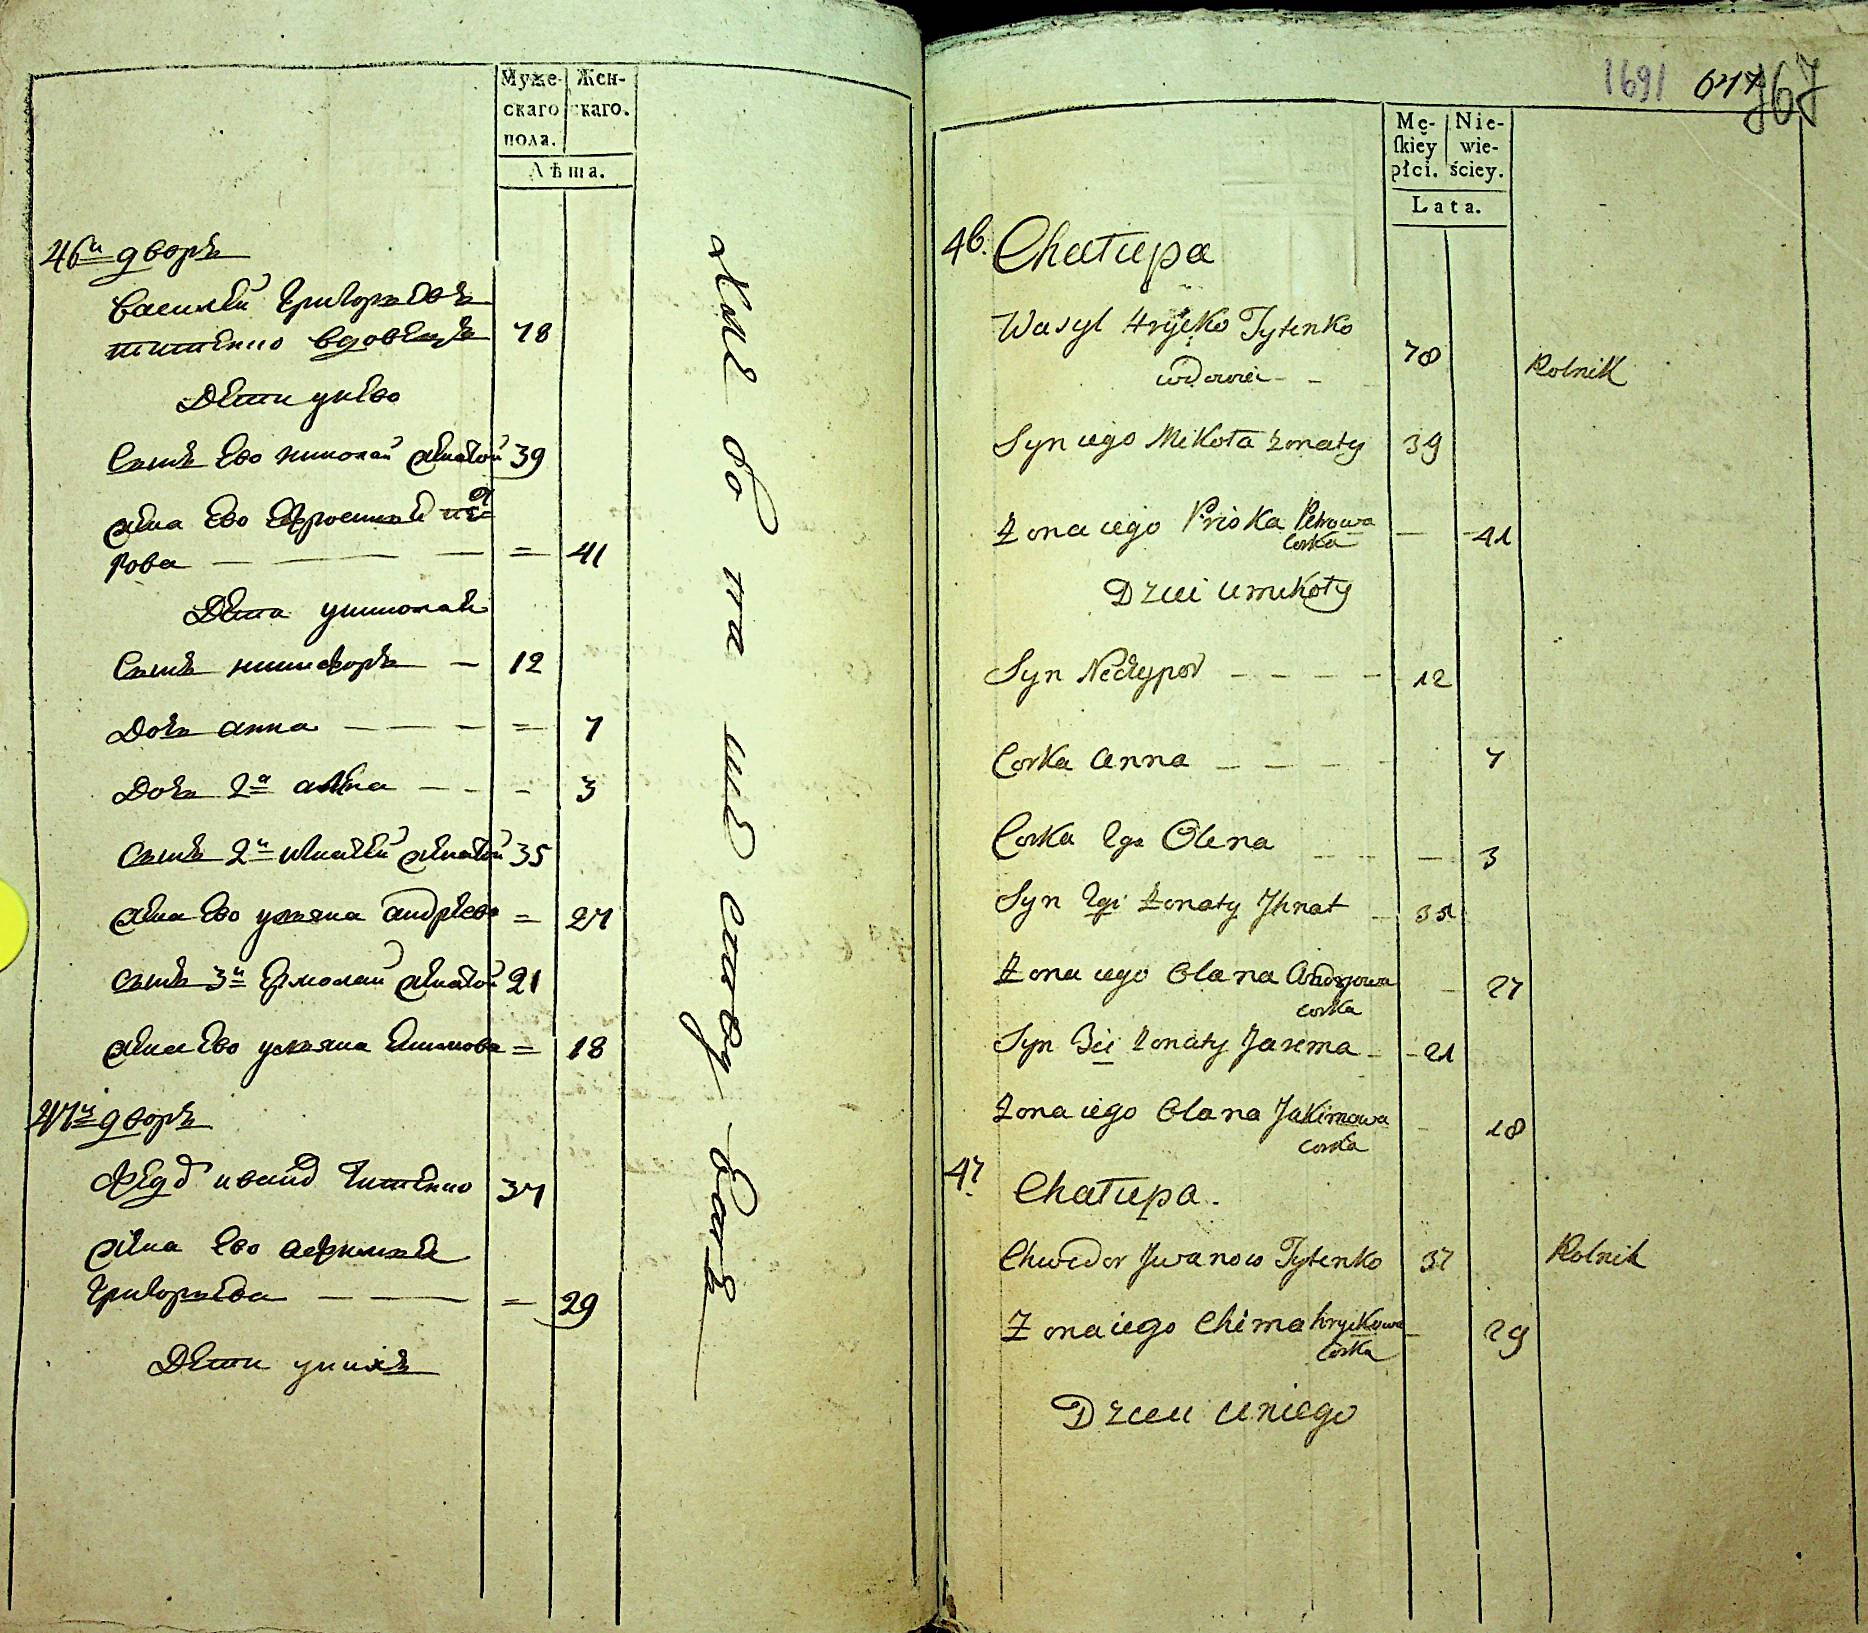 Муже-
скаго
пола.
Жен-
скаго.
Лѣта.
46й дворъ
Василей Григорьевъ
титенко вдовецъ 78
Дети унево
Сынъ Ево николай женатой 39
жена Ево Ефросинья пет
рова — — — = 41
Дети униколая
Сынъ никифоръ — 12
Дочь анна — — — = 7
Дочь 2я алена — — - 3
Сынъ 2й игнатей женатой 35
жена Ево ульяна андреева = 27
Сынъ 3й Ермолай женатой 21
жена Ево ульяна Екимова = 18
47й дворъ
Федор иванов титенко 37
жена Ево афимья
Григорьева — — — = 29
Дети унихъ
1691 647 767
Mę-
ſkiey
płci.
Nie-
wie-
ściey.
Lata.
46. Chałupa
Wasyl Hryćko Tytenko
wdowiec - - 78 Rolnik
Syn iego Mikoła żonaty 39
Żona iego Priska Petrowa
corka — — 41
Dzieci u mikoły
Syn Neczypor - - - - 12
Corka Anna - - - - 7
Corka 2ga Olena - - — 3
Syn 2gi żonaty Jhnat - 35
Żona iego Olana Andryowa
corka - 27
Syn 3ci żonaty Jarema - - 21
Żona iego Olana Jakimowa
corka - 18
47. Chałupa.
Chwedor Jwanow Tytenko 37 Rolnik
Żona iego Chima hryćkowa
Corka - 29
Dzieci u niego